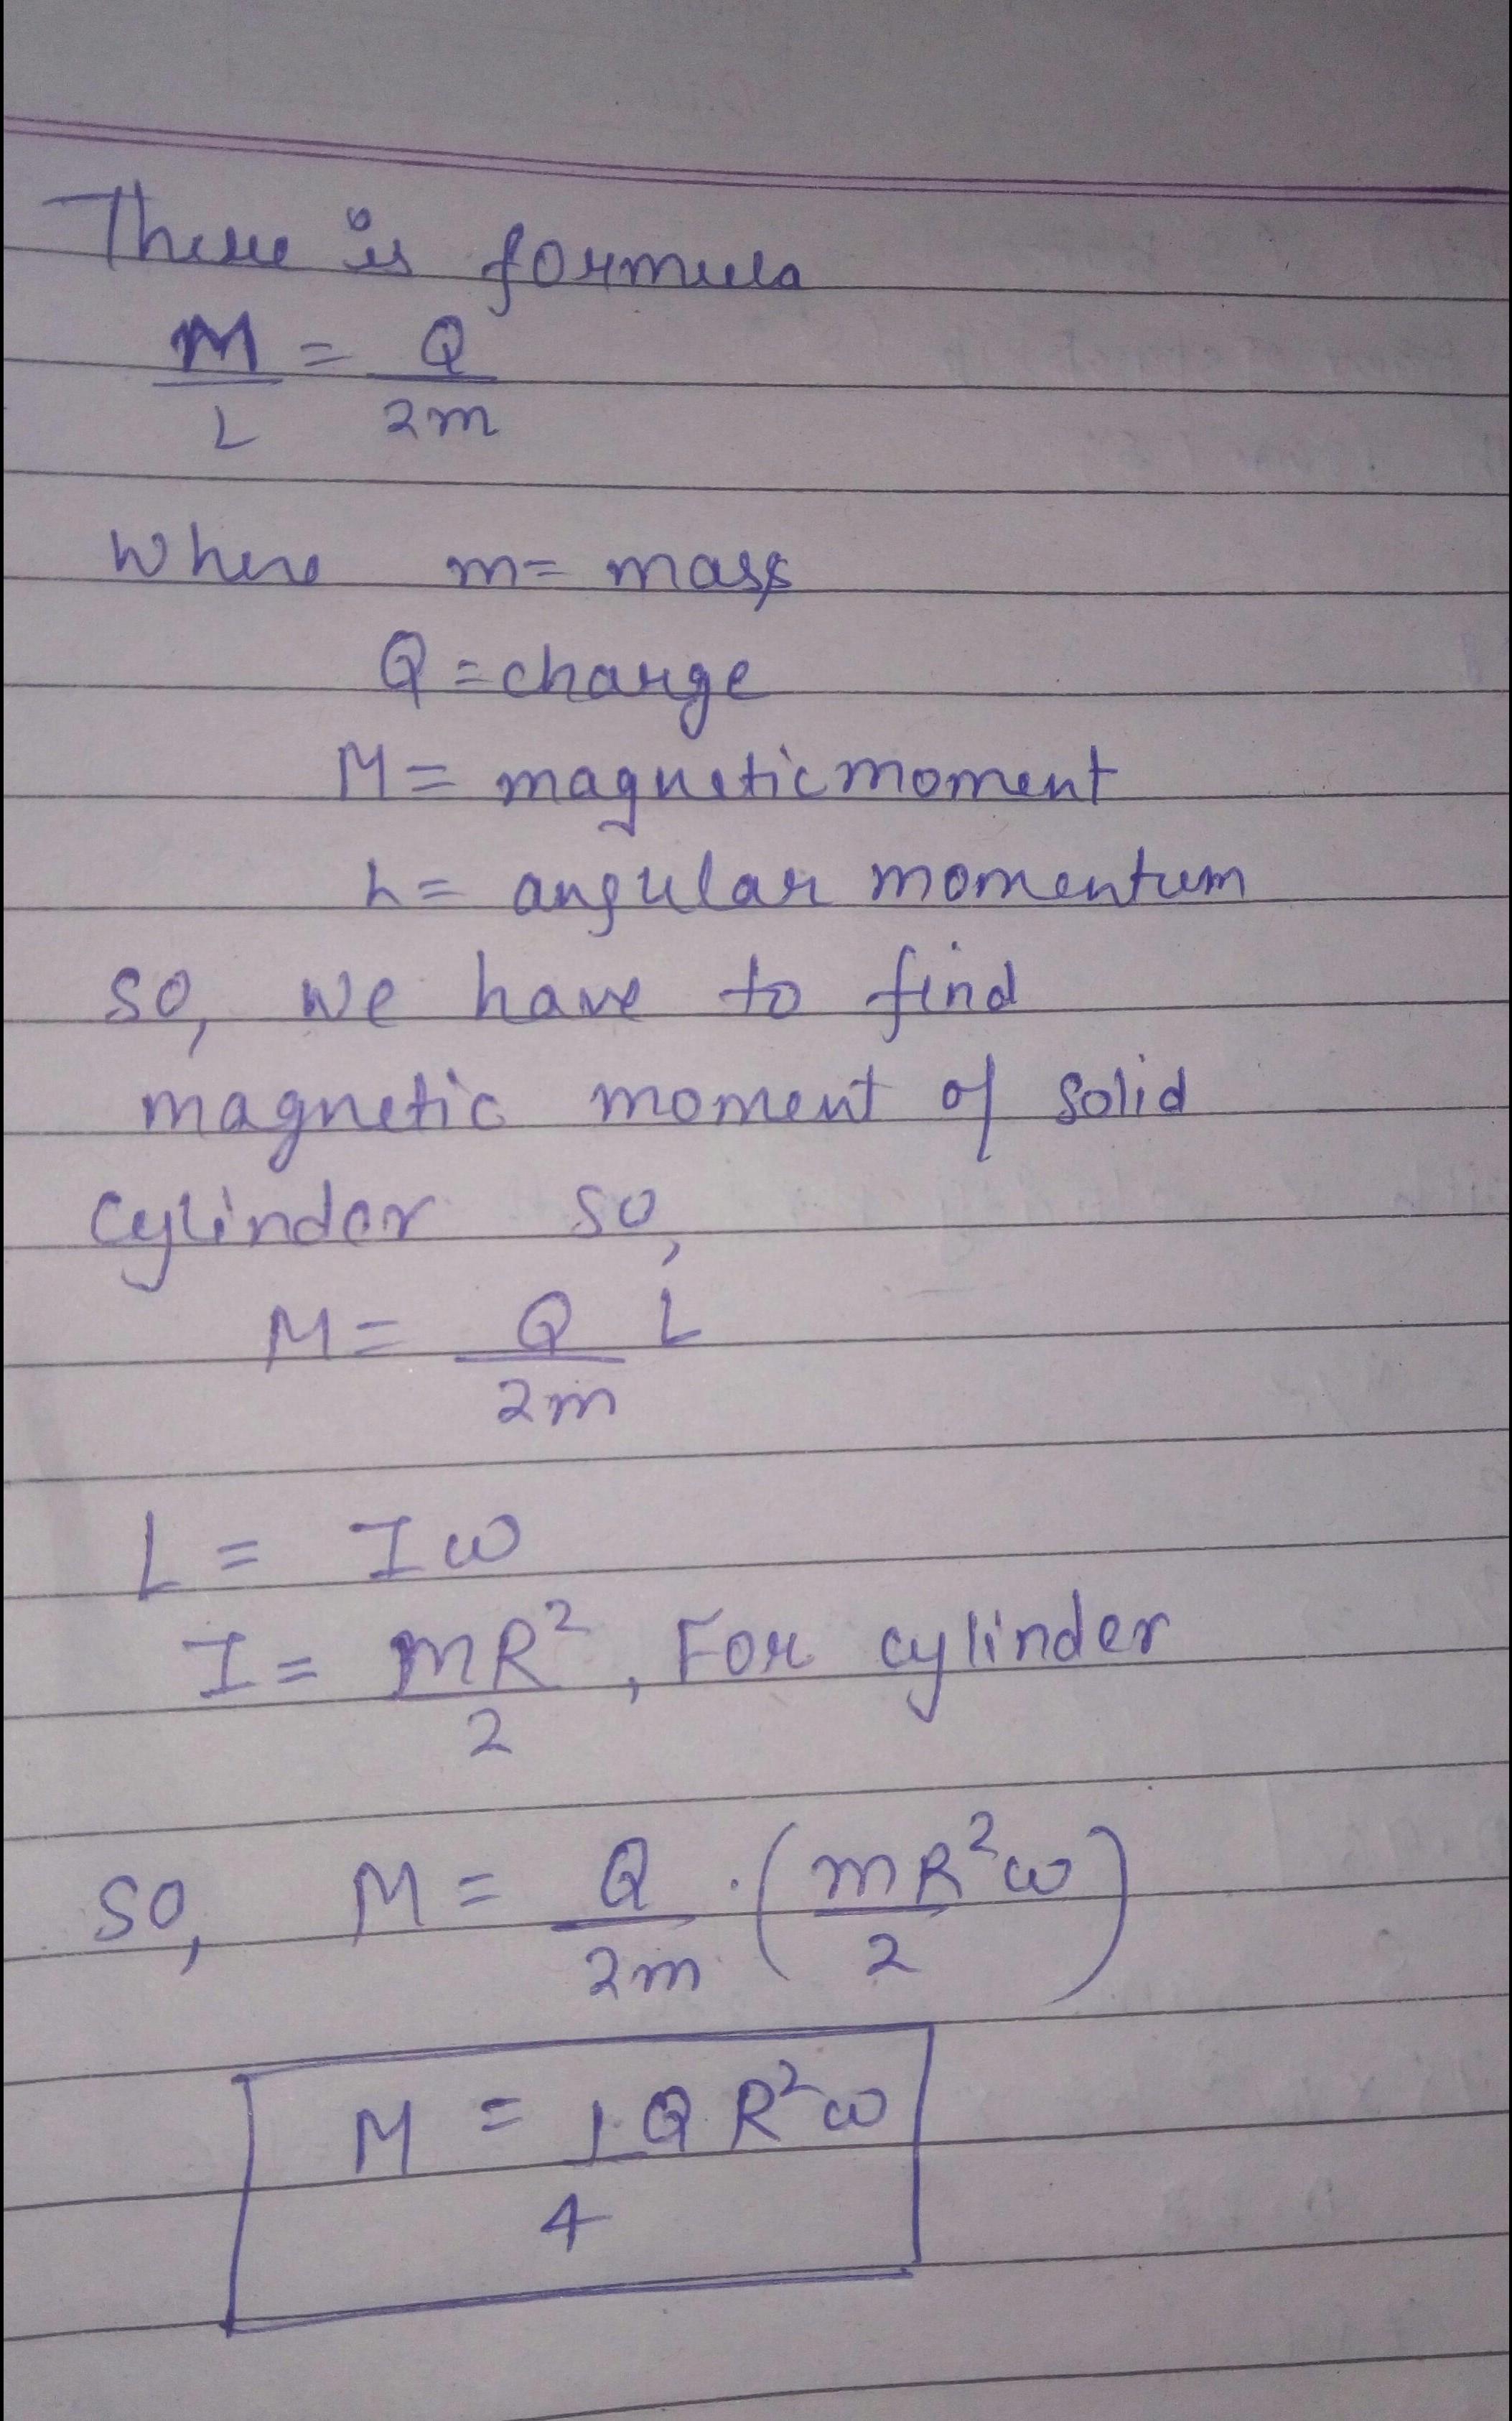 There is formula
M/L = Q/2m
where m = mass
Q = charge
M = magnetic moment
L = angular momentum
so, we have to find
magnetic moment of solid
cylinder so,
M = Q/2m L
L = Iω
I = mR²/2, For cylinder
so, M = Q/2m · (mR²ω/2)
M = 1/4 QR²ω